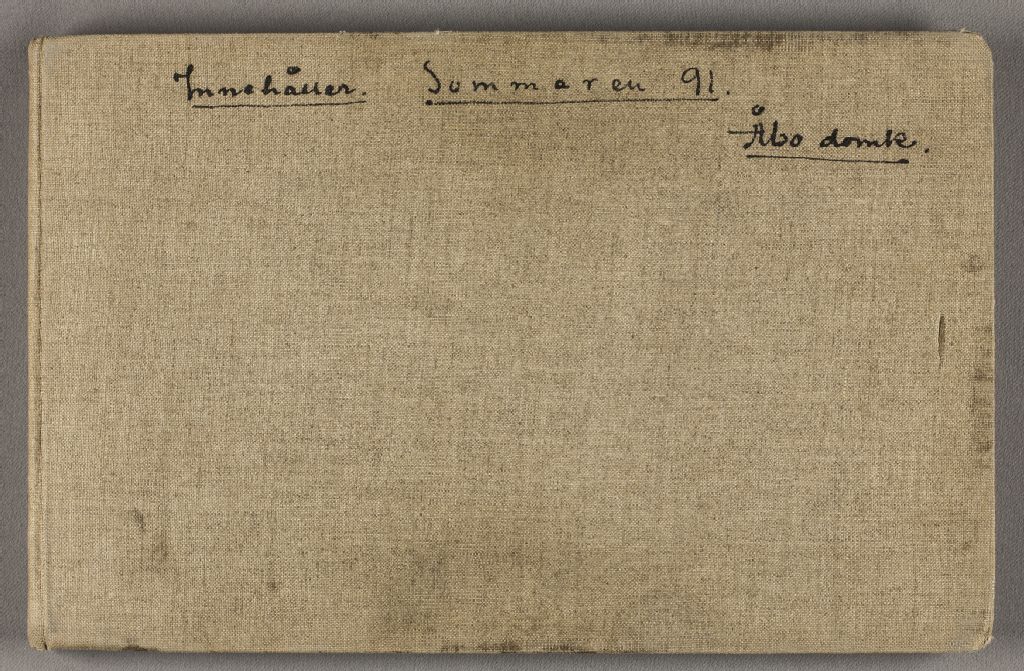 Innehåller. Sommaren 91.
Åbo domk.